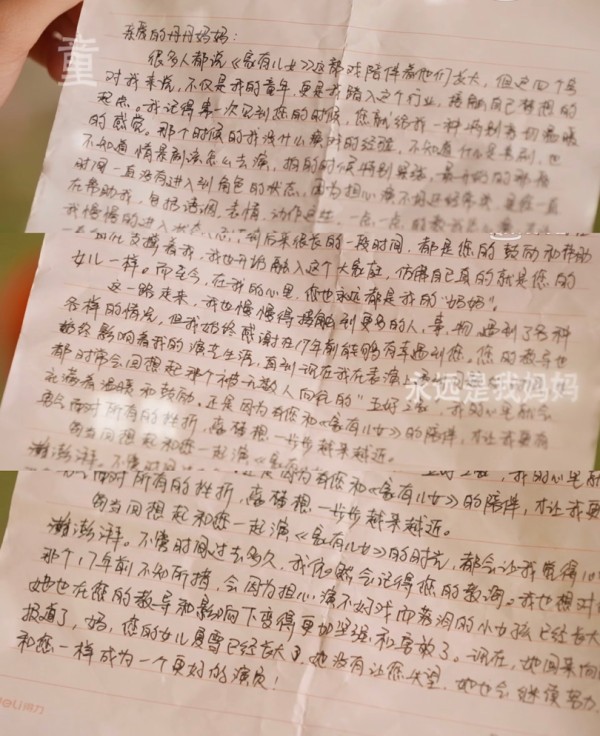 童
亲爱的丹丹妈妈：
很多人都说《家有儿女》这部戏陪伴着他们长大，但这四个字
对我来说，不仅是我的童年，更是我踏入这个行业，接触自己梦想的
起点。我记得第一次见到您的时候，您就给我一种特别亲切温暖
的感觉。那个时候的我没什么演戏的经验，不知道什么是喜剧，也
不知道情景剧该怎么去演，拍的时候特别紧张，最开始的那
时间一直没有进入到角色的状态，因为担心演不好还
在帮助我，包括语调、表情、动作这些，一点一点的教我
我慢慢的进入状态，前后来很长的一段时间，都是您的鼓励和帮助
支撑着我，我也开始融入这个大家庭，仿佛自己真的就是您的
女儿一样。而至今，在我的心里，您也永远都是我的“妈妈”。
这一路走来，我也慢慢得接触到更多的人、事、物，遇到了各种
各样的情况，但我始终感谢在17年前能够有幸遇到您。您的教导也
始终影响着我的演艺生涯，直到现在我在表演上
都时常会回想起那个被无数人向往的
永远是我妈妈
充满着温暖和鼓励。还是因为有您和《家有儿女》的陪伴，才让我更有
面对所有的挫折，离梦想一步步越来越近。
每当回想起和您一起演《家有儿女》
澎湃。不管时间
有您和《家有儿女》的陪伴，才让我更
面对所有的挫折，离梦想一步步越来越近。
每当回想起和您一起演《家有儿女》的时光，都会让我觉得心
潮澎湃。不管时间过去多久，我依然会记得您的教诲。我也想对
那个17年前不知所措，会因为担心演不好戏而落泪的小女孩已经长大
她也在您的教导和影响下变得更加坚强和豁放了。现在，她回来向
报道了，妈，您的女儿夏雪已经长大了，她没有让您失望，她也会继续努力
和您一样成为一个更好的演员！
deli得力